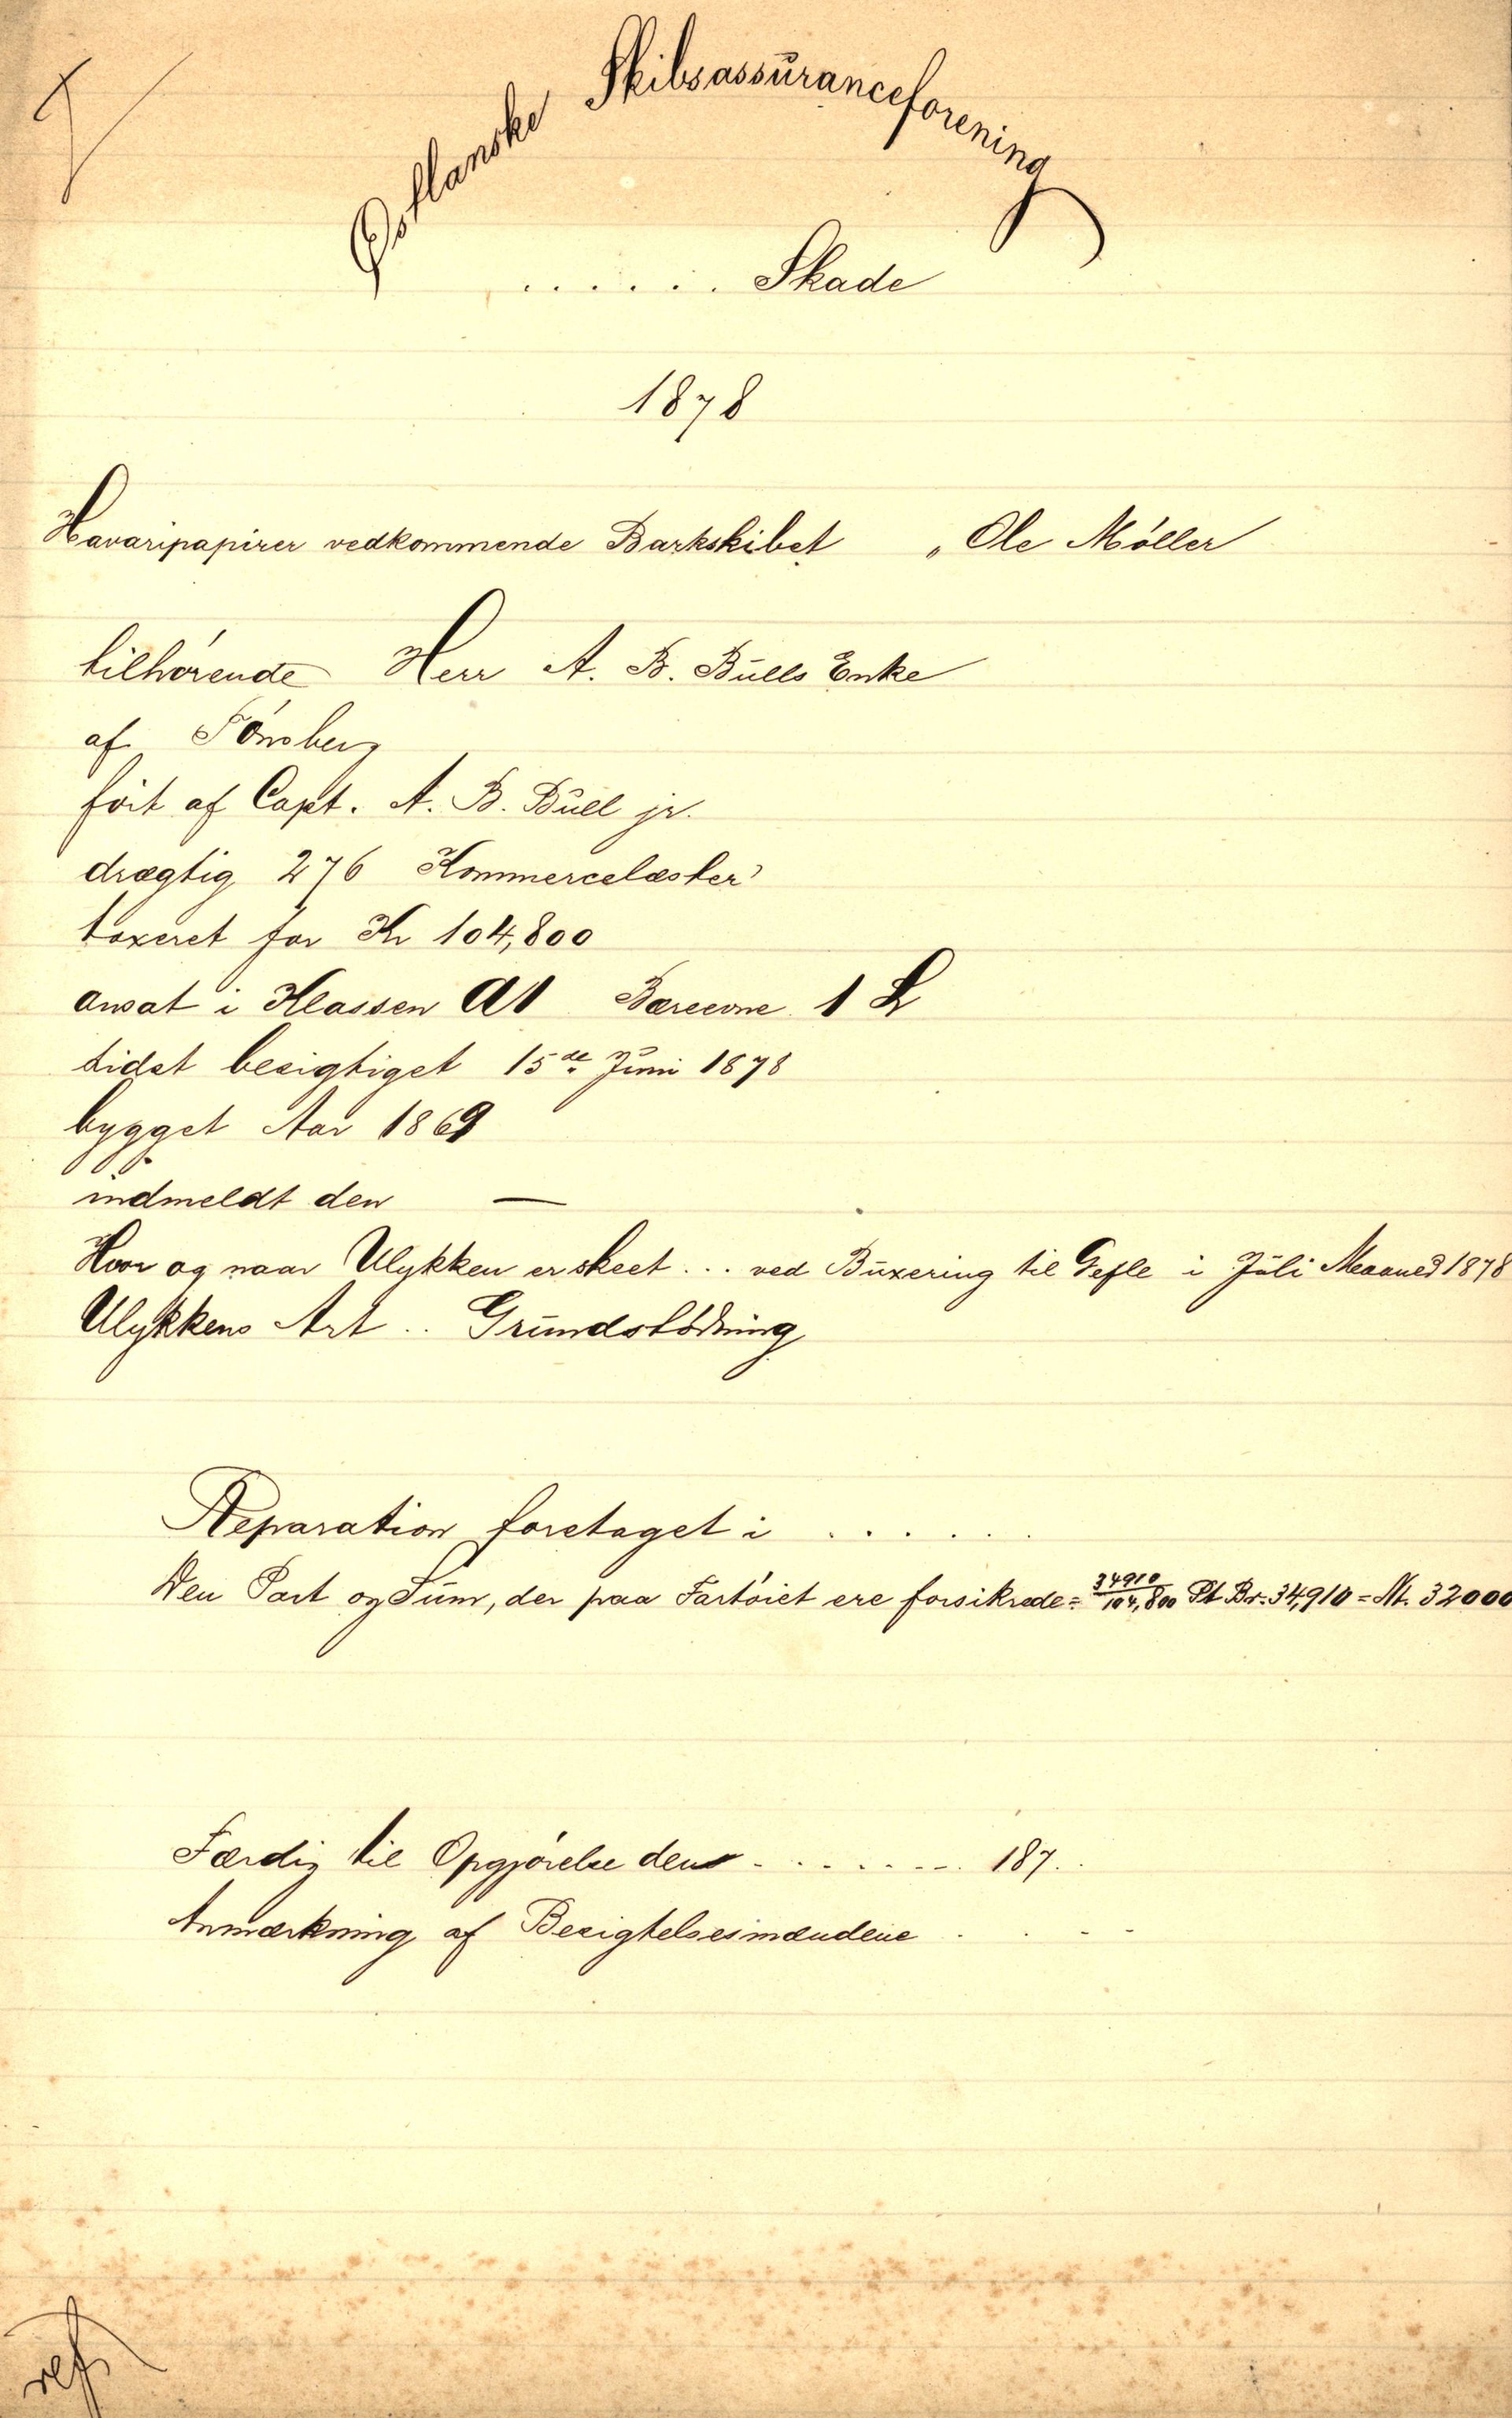 Østlanske Skibsassuranceforening
...... Skade
1878
Havaripapirer vedkommende Barkskibet „Ole Möller
tilhørende Herr A. B. Bulls Enke
af Tönsberg
ført af Capt. A. B. Bull jr.
drægtig 276 Kommercelæster
taxeret for Kr 104,800
ansat i Klassen A1 Bæreevne 1 L
sidst besigtiget 15de Juni 1878
bygget Aar 1869
indmeldt den —
Hvor og naar Ulykken er skeet... ved Buxering til Gefle i Juli Maaned 1878
Ulykkens Art.. Grundstødning
Reparation foretaget i ......
Den Part og Sum, der paa Fartöiet ere forsikrede = 34910/104,800 Pt Br. 34,910 = Nt. 32000
Færdig til Opgjørelse den ........ 187..
Anmærkning af Besigtelsesmændene ....
ref